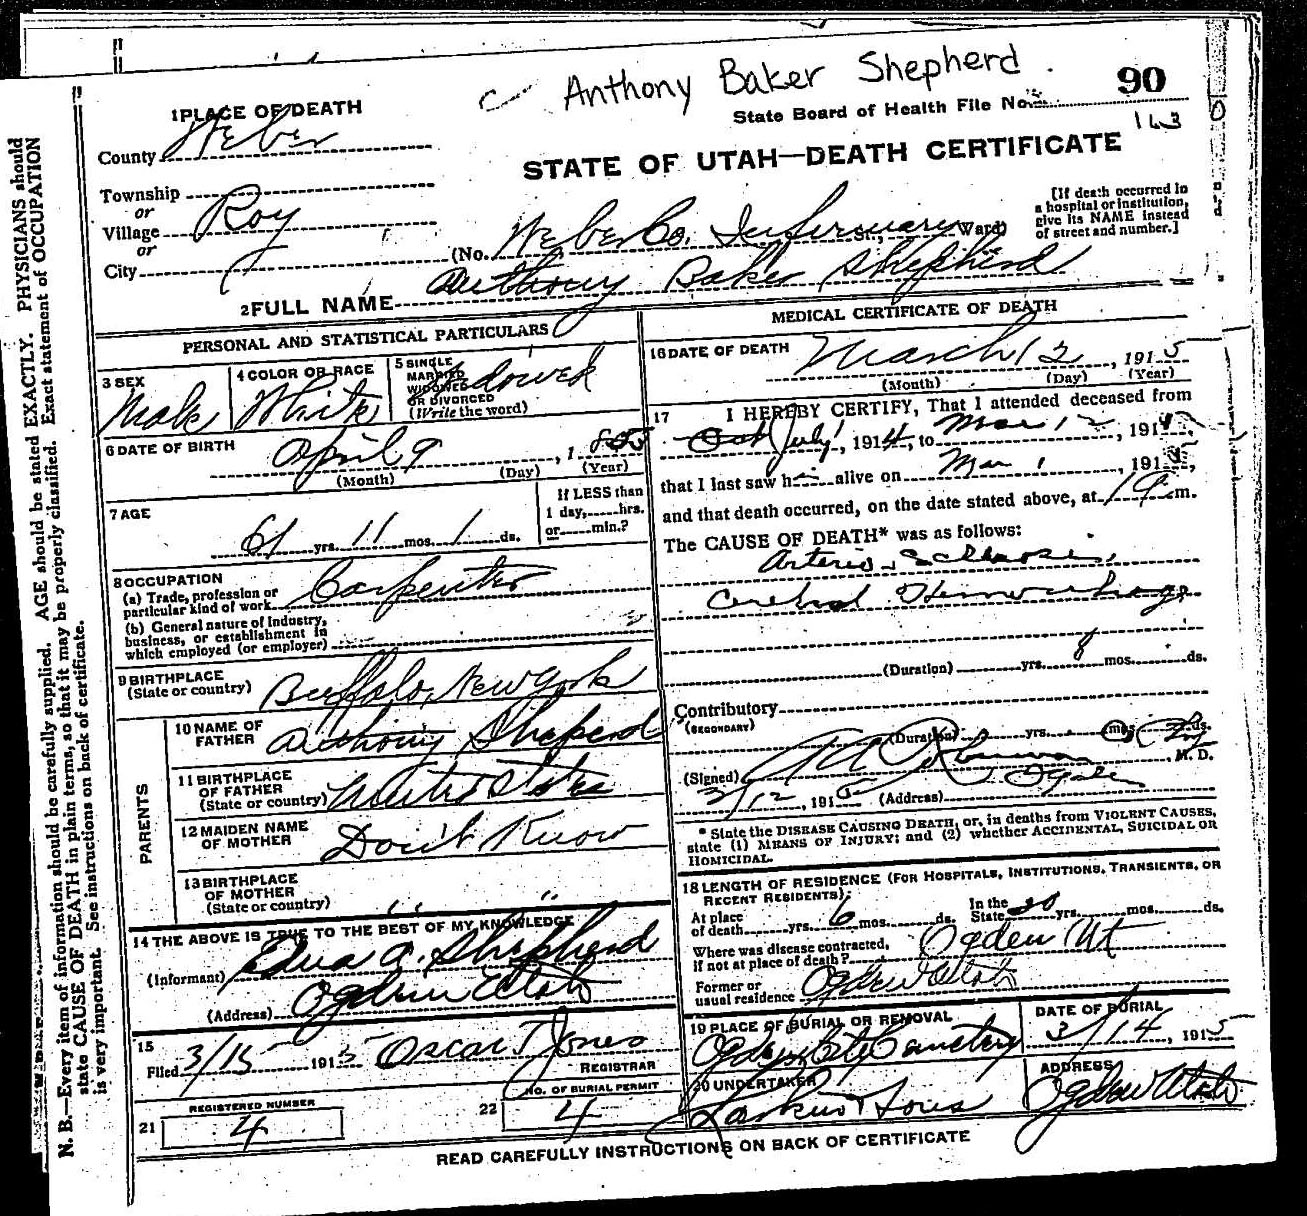 Anthony Baker Shepherd
90
State Board of Health File No.
163
STATE OF UTAH—DEATH CERTIFICATE
1 PLACE OF DEATH
County Weber
Township
or
Village Roy
or
City
(No. Weber Co. Infirmary St., Ward)
[If death occurred in
a hospital or institution,
give its NAME instead
of street and number.]
2 FULL NAME Anthony Baker Shepherd
PERSONAL AND STATISTICAL PARTICULARS
3 SEX
Male
4 COLOR OR RACE
White
5 SINGLE
MARRIED
WIDOWED
OR DIVORCED
(Write the word)
Widowed
6 DATE OF BIRTH
April 9, 1
(Month) (Day) (Year)
7 AGE
61 yrs. 11 mos. 1 ds.
If LESS than
1 day, hrs.
or min.?
8 OCCUPATION
(a) Trade, profession or
particular kind of work Carpenter
(b) General nature of Industry,
business, or establishment in
which employed (or employer)
9 BIRTHPLACE
(State or country) Buffalo, New York
PARENTS
10 NAME OF
FATHER Anthony Sheperd
11 BIRTHPLACE
OF FATHER
(State or country) United States
12 MAIDEN NAME
OF MOTHER Don't Know
13 BIRTHPLACE
OF MOTHER
(State or country) " "
14 THE ABOVE IS TRUE TO THE BEST OF MY KNOWLEDGE
(Informant) Edna A. Shepherd
(Address) Ogden Utah
15
Filed 3/15 1915 Oscar T Jones
REGISTRAR
REGISTERED NUMBER
21 4
NO. OF BURIAL PERMIT
22 4
MEDICAL CERTIFICATE OF DEATH
16 DATE OF DEATH
March 12, 1915
(Month) (Day) (Year)
17 I HEREBY CERTIFY, That I attended deceased from
July 1, 1914, to Mar 12, 191
that I last saw him alive on Mar 1, 191
and that death occurred, on the date stated above, at 1 P m.
The CAUSE OF DEATH* was as follows:
Arterio Sclerosis,
Cerebral Hemorrhage
(Duration) yrs. 8 mos. ds.
Contributory
(SECONDARY)
(Duration) yrs. mos. ds.
(Signed) M. D.
3/12, 1915 (Address) Ogden
* State the DISEASE CAUSING DEATH, or, in deaths from VIOLENT CAUSES,
state (1) MEANS OF INJURY; and (2) whether ACCIDENTAL, SUICIDAL OR
HOMICIDAL.
18 LENGTH OF RESIDENCE (FOR HOSPITALS, INSTITUTIONS, TRANSIENTS, OR
RECENT RESIDENTS);
At place
of death yrs. 6 mos. ds.
In the
State 20 yrs. mos. ds.
Where was disease contracted,
if not at place of death? Ogden Ut
Former or
usual residence Ogden Utah
19 PLACE OF BURIAL OR REMOVAL
Ogden City Cemetery
DATE OF BURIAL
3/14, 1915
20 UNDERTAKER
Larkin & Sons
ADDRESS
Ogden Utah
READ CAREFULLY INSTRUCTIONS ON BACK OF CERTIFICATE
N. B.—Every item of information should be carefully supplied. AGE should be stated EXACTLY. PHYSICIANS should
state CAUSE OF DEATH in plain terms, so that it may be properly classified. Exact statement of OCCUPATION
is very important. See instructions on back of certificate.